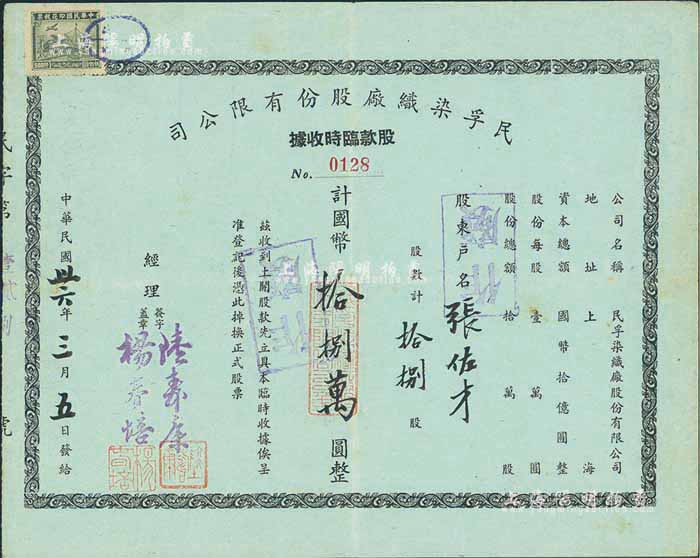 中華民國印花稅票
民孚染織廠股份有限公司
股款臨時收據
No. 0128
公司名稱 民孚染織廠股份有限公司
地址 上海
資本總額 國幣拾億圓整
股份每股 壹萬圓
股份總額 拾萬股
股東戶名 張佐才
股數計 拾捌 股
計國幣 拾捌萬 圓整
茲收到上開股款先立具本臨時收據俟呈
准登記後憑此掉換正式股票
經理 簽字蓋章
中華民國 卅六 年 三 月 五 日發給
作
作
民字第
號